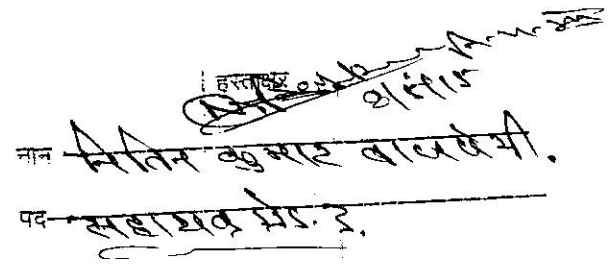 हस्ताक्षर
नाम नितिन कुमार बाजपेयी.
पद सहायक ग्रेड. 3.